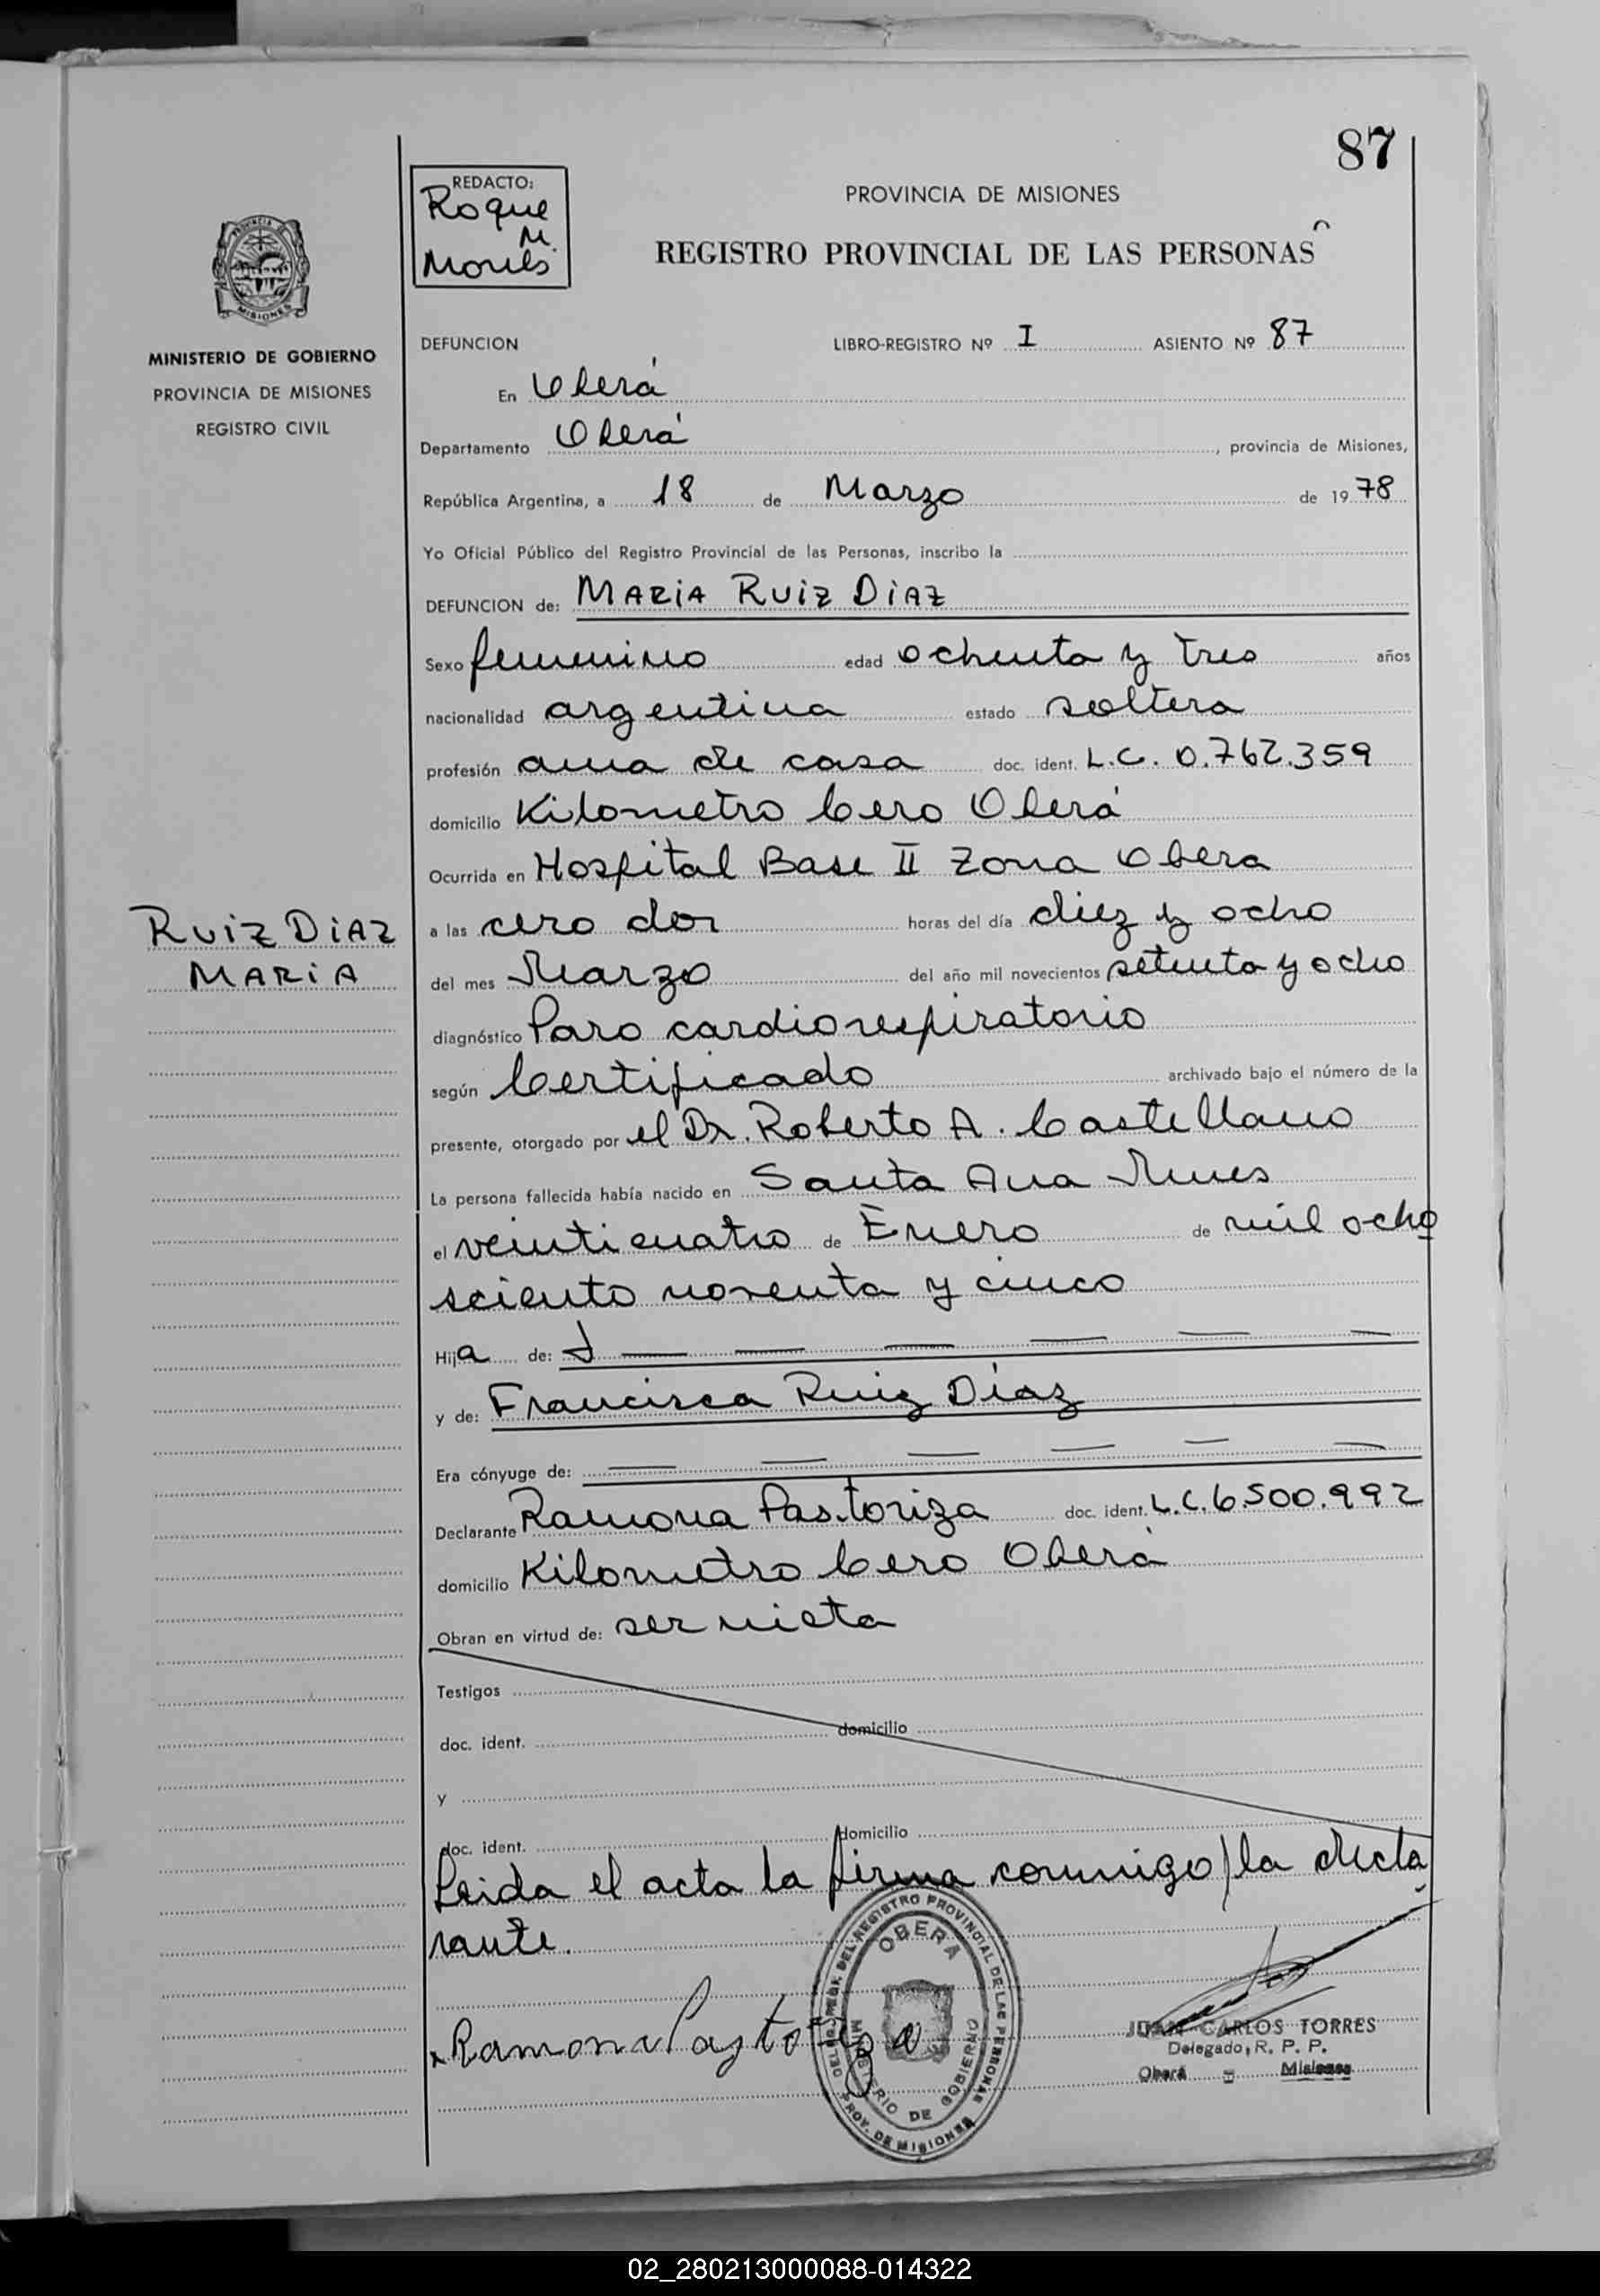 87
REDACTO:
Roque
M.
PROVINCIA DE MISIONES
REGISTRO PROVINCIAL DE LAS PERSONAS
MINISTERIO DE GOBIERNO
PROVINCIA DE MISIONES
REGISTRO CIVIL
DEFUNCION LIBRO-REGISTRO Nº I ASIENTO Nº 87
En Oberá
Departamento Oberá, provincia de Misiones,
República Argentina, a 18 de Marzo de 1978
Yo Oficial Público del Registro Provincial de las Personas, inscribo la
DEFUNCION de: MARIA RUIZ DIAZ
Sexo femenino edad ochenta y tres años
nacionalidad argentina estado soltera
profesión ama de casa doc. ident. L.C. 0.762.359
domicilio Kilometro Cero Oberá
Ocurrida en Hospital Base II Zona Obera
RUIZ DIAZ
MARIA
a las cero dos horas del día diez y ocho
del mes Marzo del año mil novecientos setenta y ocho
diagnóstico Paro cardiorespiratorio
según Certificado archivado bajo el número de la
presente, otorgado por el Dr. Roberto A. Castellano
La persona fallecida había nacido en Santa Ana Mnes
el veinticuatro de Enero de mil ocho
sciento noventa y cinco
Hija de: — — — — — —
y de: Francisca Ruiz Díaz
Era cónyuge de: — — — — — —
Declarante Ramona Pastoriza doc. ident. L.C. 6.500.992
domicilio Kilometro Cero Oberá
Obran en virtud de: ser nieta
Testigos
doc. ident. domicilio
y
doc. ident. domicilio
Leida el acta la firma conmigo la decla
rante.
Ramona Pastoriza
DEL REGISTRO PROVINCIAL DE LAS PERSONAS
OBERA
MINISTERIO DE GOBIERNO
PROV. DE MISIONES
JUAN CARLOS TORRES
Delegado, R. P. P.
Oberá - Misiones
02_280213000088-014322